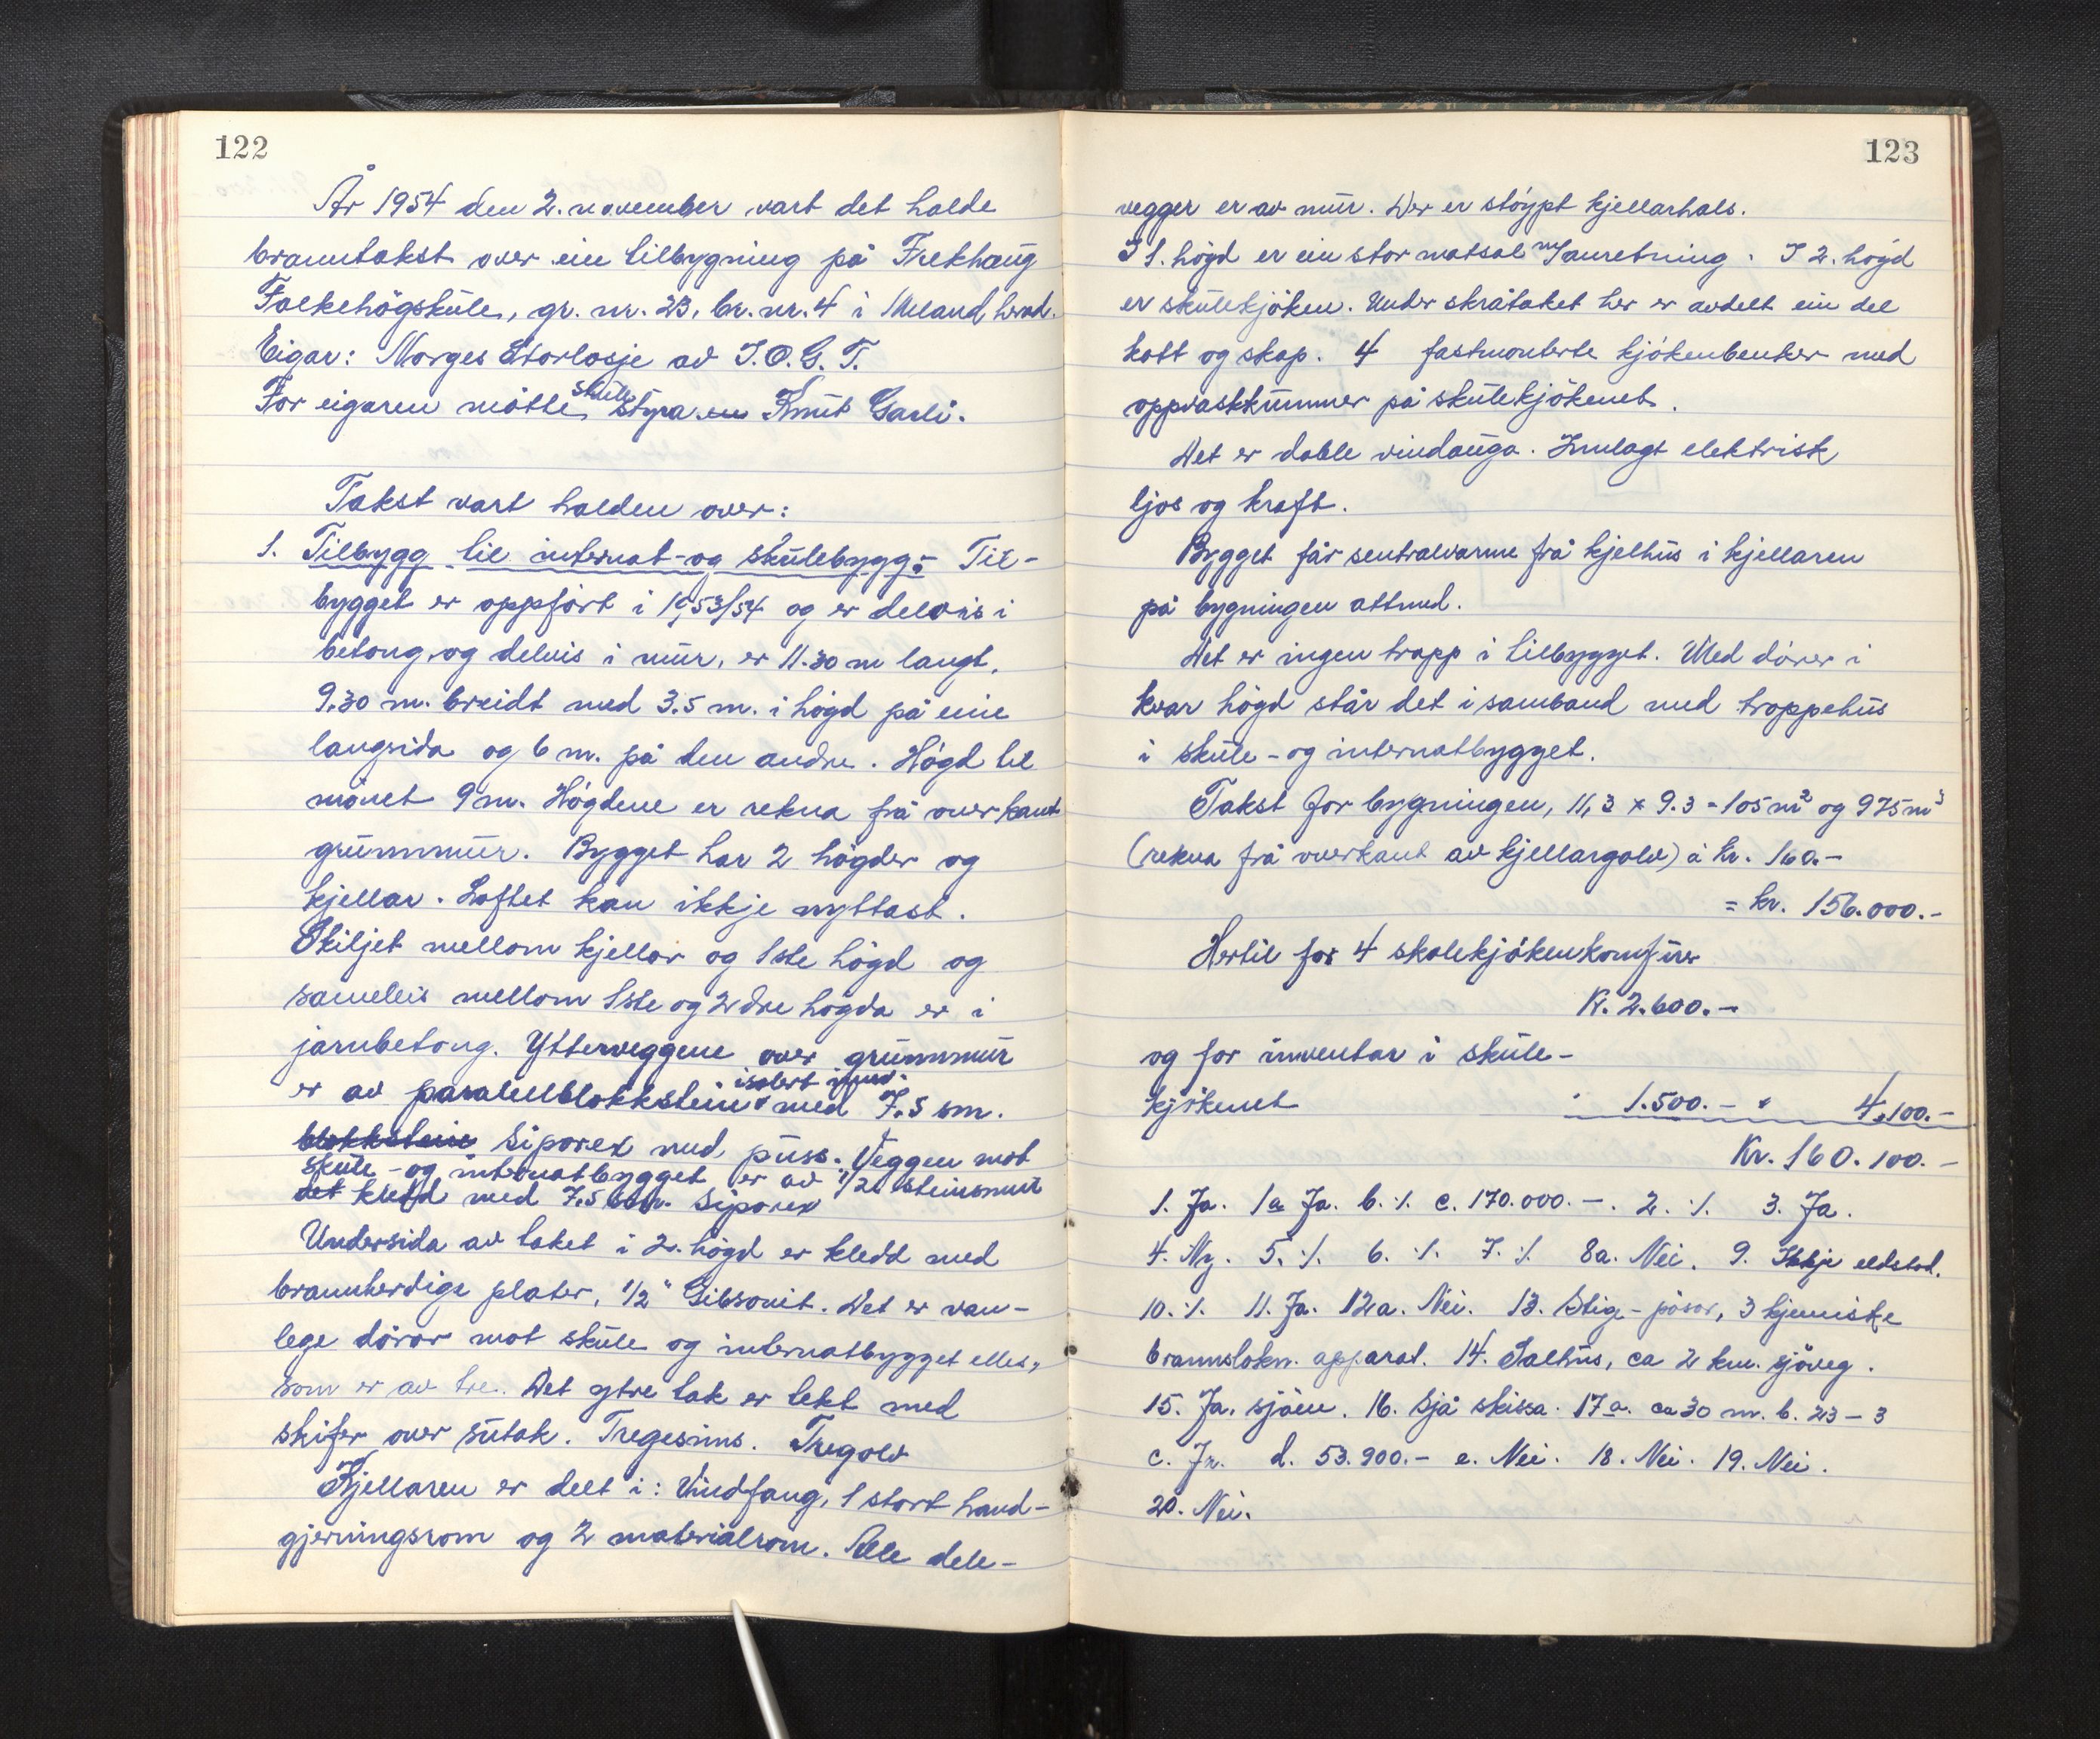 122
År 1954 den 2. november vart det halde
branntakst over ein tilbygning på Frekhaug
Folkehögskule, gr. nr. 23, br. nr. 4 i Meland herad.
Eigar: Norges Storlosje av I.O.G.T.
For eigaren mötte skulestyraren Knut Garli.
Takst vart halden over:
1. Tilbygg til internat- og skulebygg:- Til-
bygget er oppfört i 1953/54 og er delvis i
betong og delvis i mur, er 11.30 m langt,
9.30 m. breidt med 3.5 m. i högd på eine
langsida og 6 m. på den andre. Högd til
mönet 9 m. Högdene er rekna frå overkant
grunnmur. Bygget har 2 högder og
kjellar. Loftet kan ikkje nyttast.
Skiljet mellom kjellar og 1ste högd og
sameleis mellom 1ste og 2dre högda er i
jarnbetong. Ytterveggene over grunnmur
er av paralellblokkstein isolert innv. med 7.5 sm.
blokkstein Siporex med puss. Veggen mot
skule- og internatbygget er av 1/2 steinsmur
det kledd med 7.5 sm. Siporex
Undersida av taket i 2. högd er kledd med
brannherdige plater, 1/2" Gibsonit. Det er van-
lege dörar mot skule og internatbygget elles,
som er av tre. Det ytre tak er tekt med
skifer over sutak. Tregesims. Tregolv
Kjellaren er delt i: Vindfang, 1 stort hand-
gjerningsrom og 2 materialrom. Alle dele-
123
vegger er av mur. Der er stöypt kjellarhals.
I 1. högd er ein stor matsal m/anretning. I 2. högd
er skulekjöken. Under skråtaket her er avdelt ein del
kott og skap. 4 fastmonterte kjökenbenker med
oppvaskkummer på skulekjökenet.
Det er doble vindauga. Innlagt elektrisk
ljos og kraft.
Bygget får sentralvarme frå kjelhus i kjellaren
på bygningen attmed.
Det er ingen trapp i tilbygget. Med dörer i
kvar högd står det i samband med trappehus
i skule- og internatbygget.
Takst for bygningen, 11,3 x 9.3 = 105 m² og 975 m³
(rekna frå overkant av kjellargolv) à kr. 160.-
= kr. 156.000.-
Hertil for 4 skolekjökenkomfürer
Kr. 2.600.-
og for inventar i skule-
kjökenet " 1.500.- " 4.100.-
Kr. 160.100.-
1. Ja. 1a Ja. b. ./. c. 170.000.-. 2. ./. 3. Ja.
4. Ny. 5. ./. 6. ./. 7. ./. 8a. Nei. 9. Ikkje eldstad.
10. ./. 11. Ja. 12a. Nei. 13. Stige - pösar, 3 kjemiske
brannslokn. apparat. 14. Salhus, ca 2 km. sjöveg.
15. Ja, sjöen. 16. Sjå skissa. 17a. ca 30 m. b. 23 - 3
c. Ja. d. 53.900.- e. Nei. 18. Nei. 19. Nei.
20. Nei.